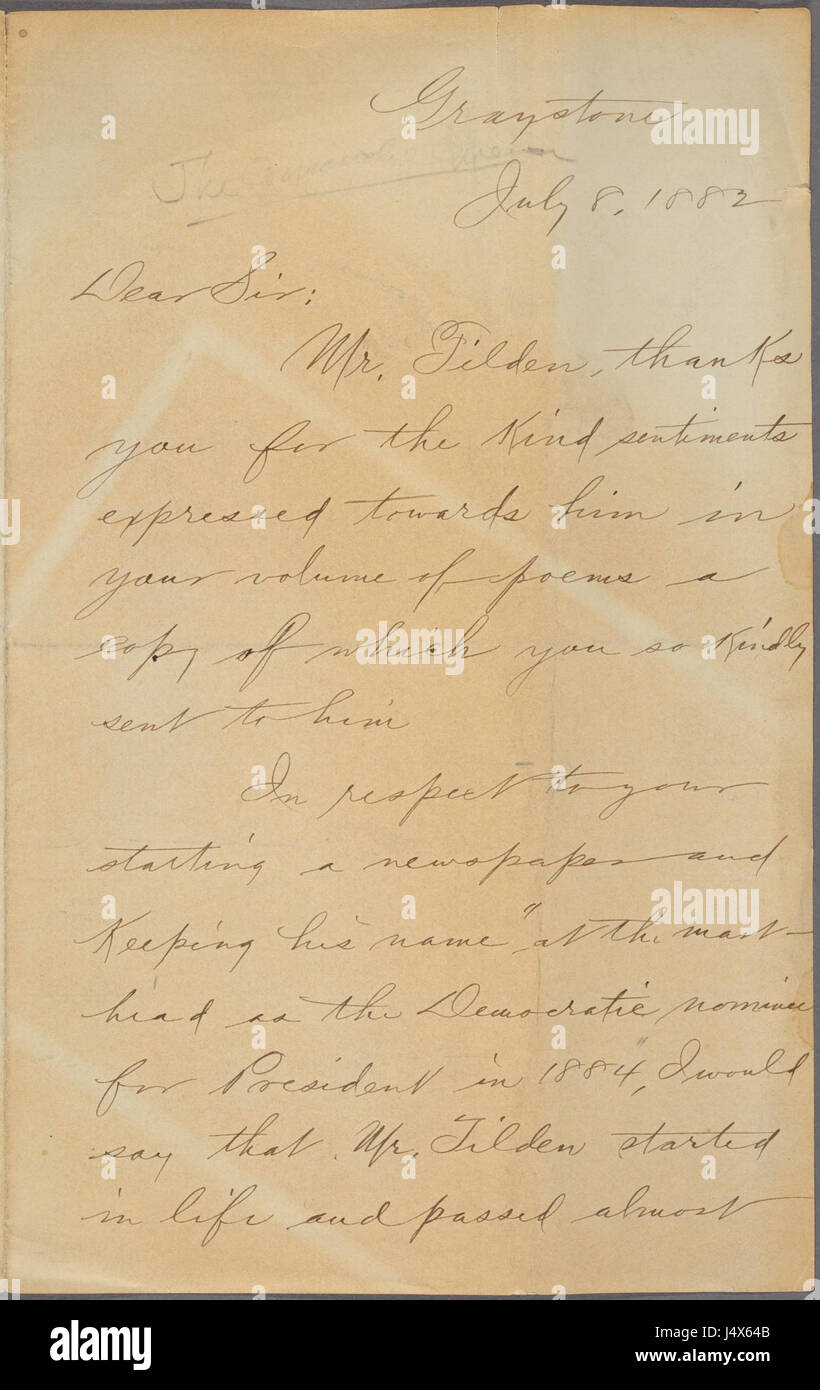 Graystone
The
July 8, 1882
Dear Sir:
Mr. Tilden, thanks
you for the kind sentiments
expressed towards him in
your volume of poems a
copy of which you so kindly
sent to him
In respect to your
starting a newspaper and
keeping his name "at the mast-
head as the Democratic nominee
for President in 1884", I would
say that Mr. Tilden started
in life and passed almost
alamy
a
alamy stock photo
J4X64B
www.alamy.com